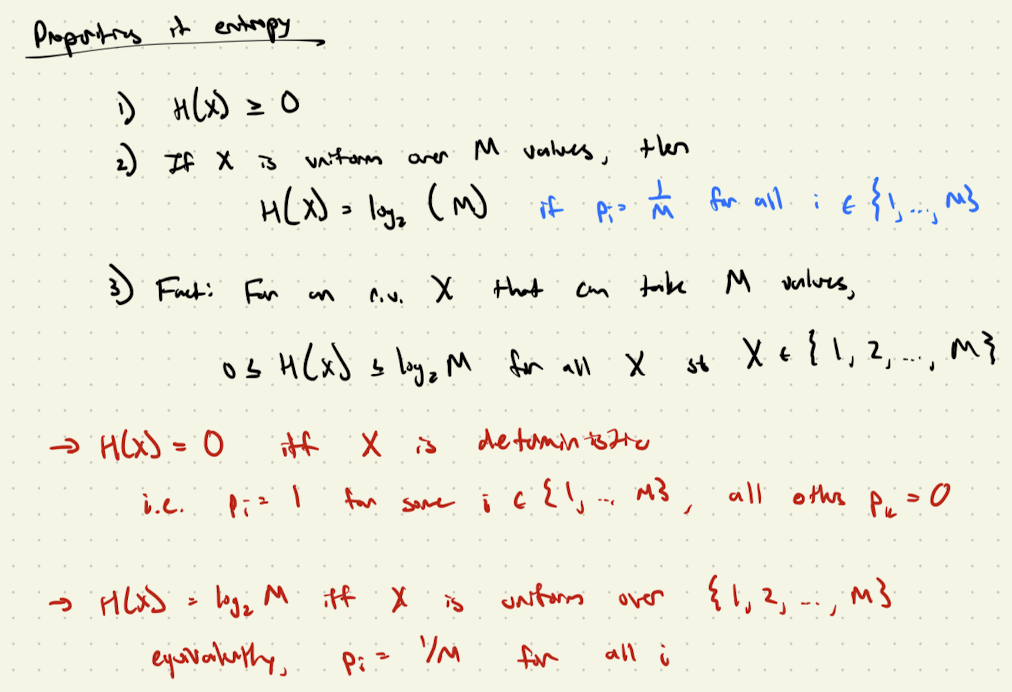 Properties of entropy
1) H(X) ≥ 0
2) If X is uniform over M values, then
H(X) = log₂ (M) if pᵢ = 1/M for all i ∈ {1, ..., M}
3) Fact: For an r.v. X that can take M values,
0 ≤ H(X) ≤ log₂ M for all X st X ∈ {1, 2, ..., M}
→ H(X) = 0 iff X is deterministic
i.e. pᵢ = 1 for some i ∈ {1, ... M}, all others pₖ = 0
→ H(X) = log₂ M iff X is uniform over {1, 2, ..., M}
equivalently, pᵢ = 1/M for all i